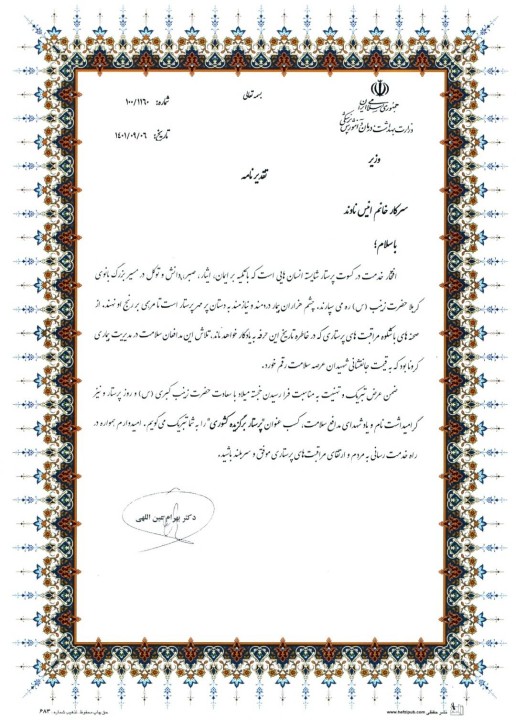 بسمه تعالی
جمهوری اسلامی ایران
وزارت بهداشت، درمان و آموزش پزشکی
وزیر
شماره: ۱۰۰/۱۱۶۰
تاریخ: ۱۴۰۱/۰۹/۰۶
تقدیرنامه
سرکار خانم انیس ناوند
با سلام؛
افتخار خدمت در کسوت پرستار شایسته انسان هایی است که با تکیه بر ایمان، ایثار، صبر، دانش و توکل در مسیر بزرگ بانوی
کربلا حضرت زینب (س) ره می سپارند، چشم هزاران بیمار دردمند و نیازمند به دستان پر مهر پرستار است تا مرهمی بر رنج او نهند. از
صحنه های باشکوه مراقبت های پرستاری که در خاطره تاریخ این حرفه به یادگار خواهد ماند، تلاش این مدافعان سلامت در مدیریت بیماری
کرونا بود که به قیمت جانفشانی شهیدان عرصه سلامت رقم خورد.
ضمن عرض تبریک و تهنیت به مناسبت فرا رسیدن خجسته میلاد با سعادت حضرت زینب کبری (س) و روز پرستار و نیز
گرامیداشت نام و یاد شهدای مدافع سلامت، کسب عنوان "پرستار برگزیده کشوری" را به شما تبریک می گویم. امیدوارم همواره در
راه خدمت رسانی به مردم و ارتقای مراقبت های پرستاری موفق و سربلند باشید.
دکتر بهرام عین اللهی
نشر هفتمی www.haftopub.com
حق چاپ محفوظ. تذهیب شماره: ۶۸۳